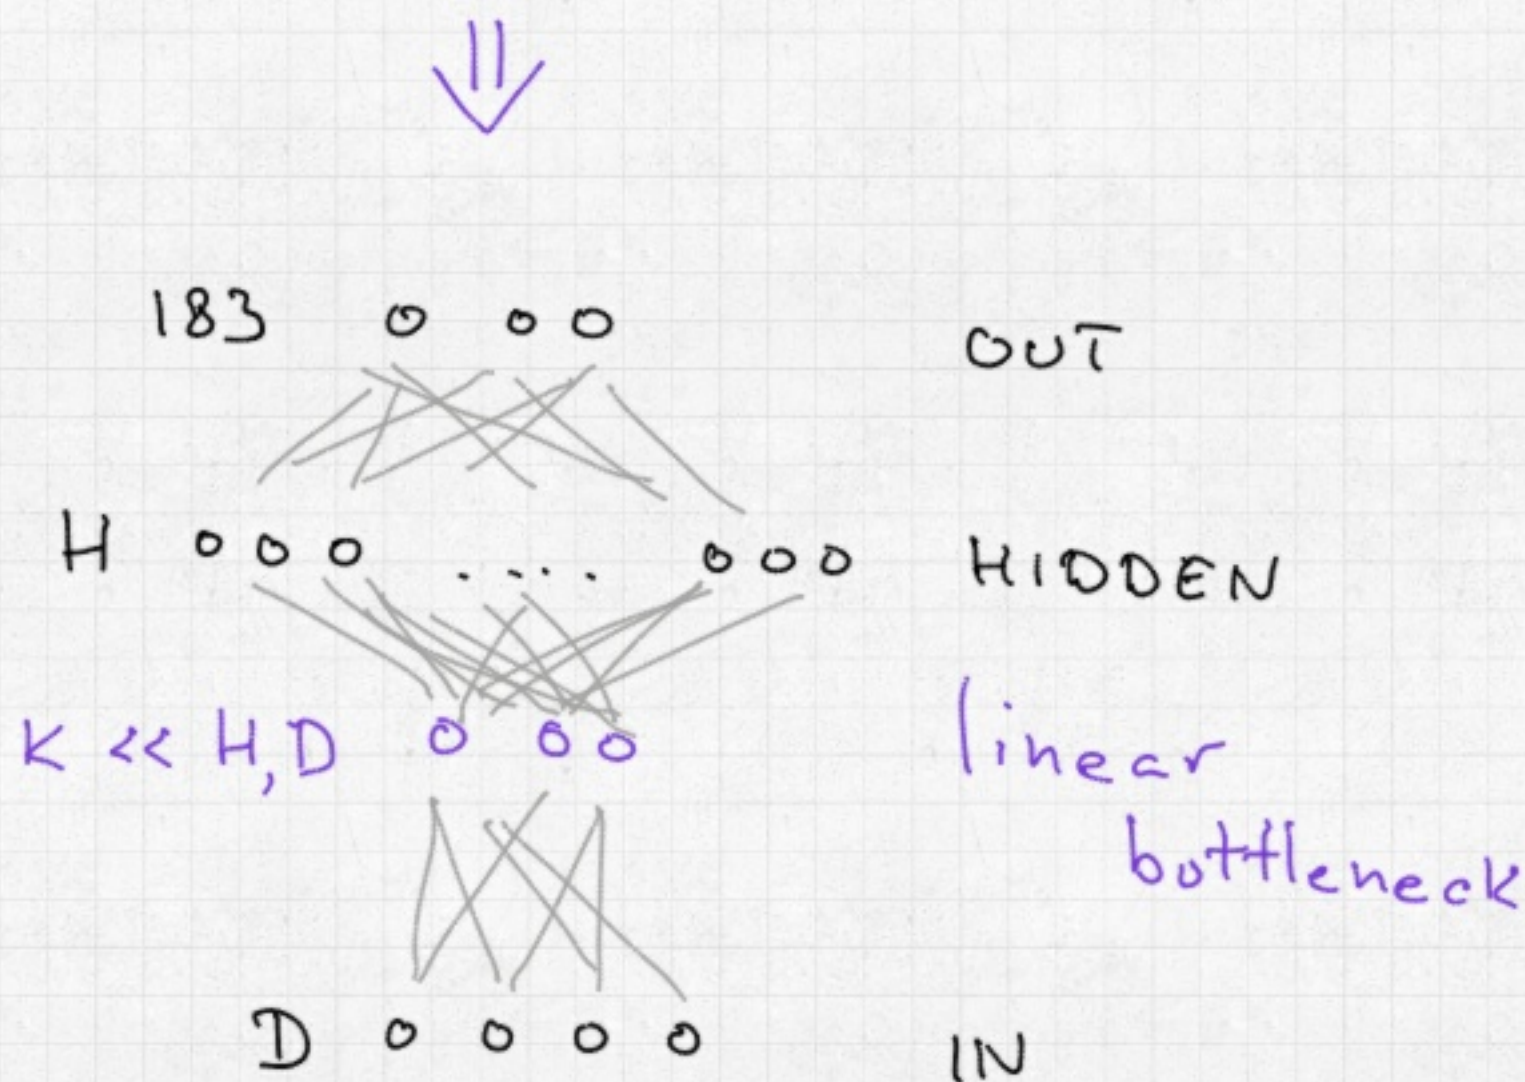 183 OUT
H .... HIDDEN
K << H, D linear
bottleneck
D IN